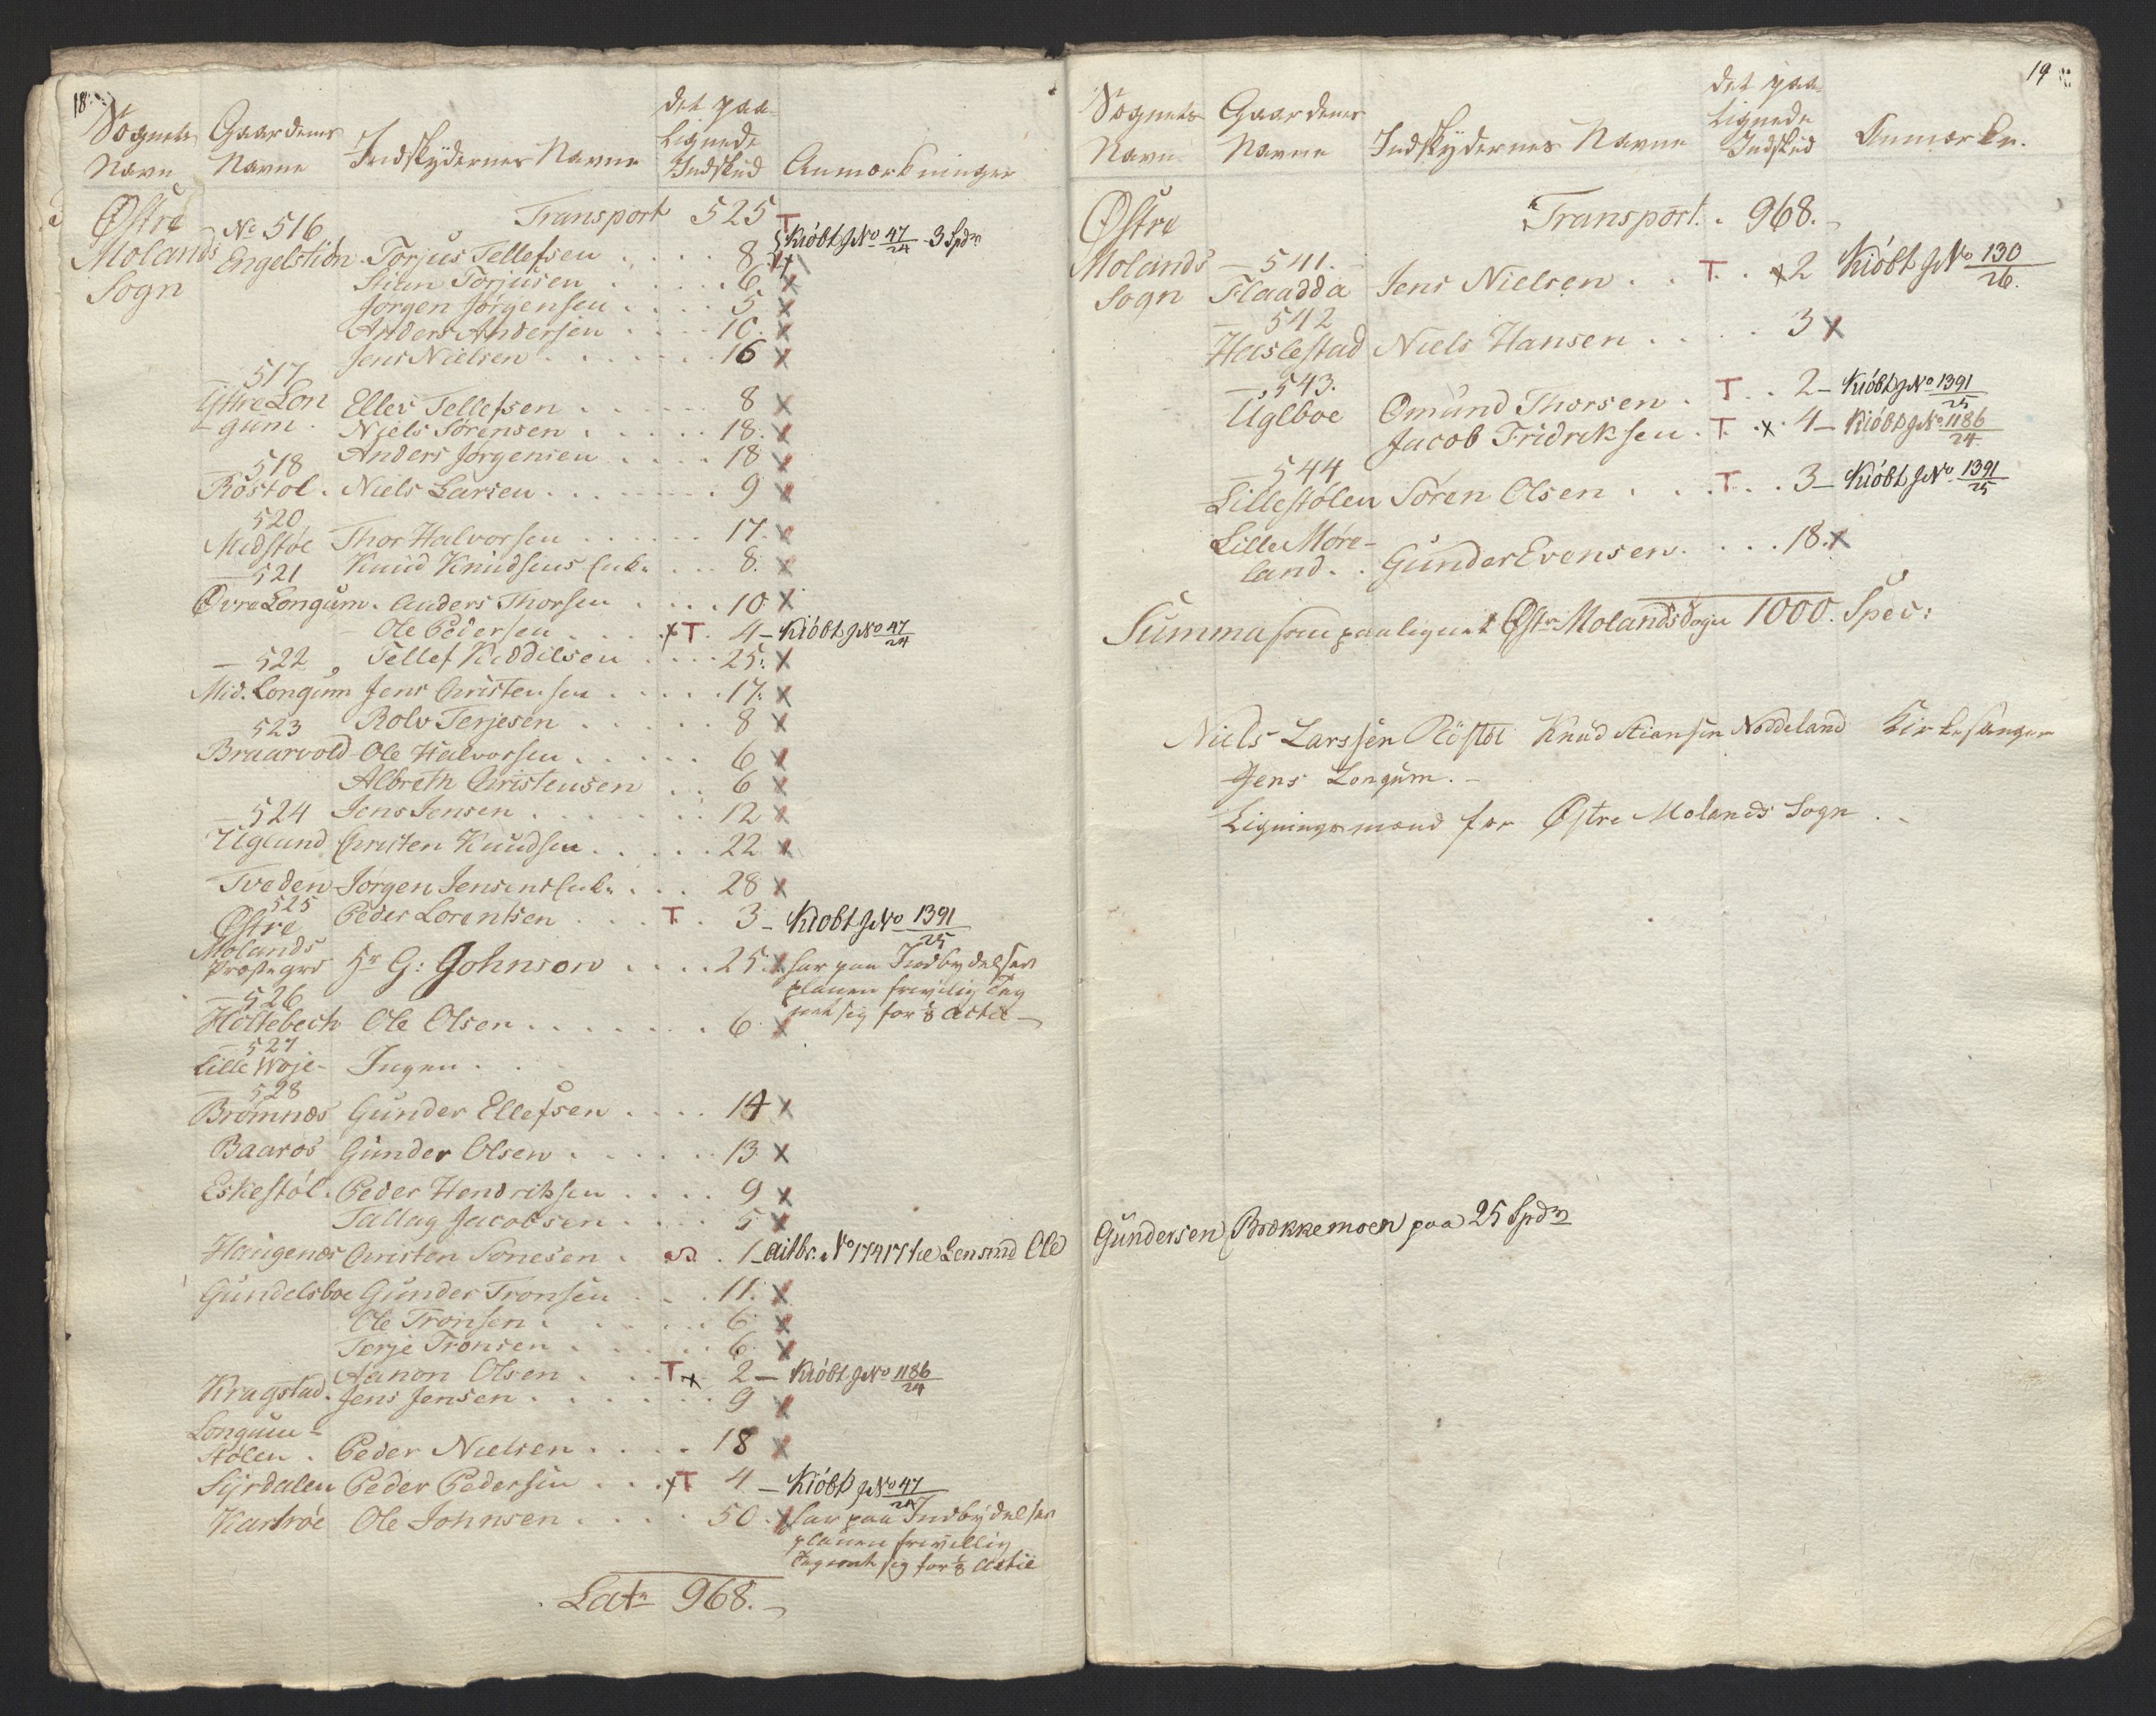 18
Sognets Gaardenes det paa
Navn Navne Indskydernes Navne Lignede
Indskud Anmærkninger
Østre No 516 Transport 525 T
Molands Engelstion Torjus Tellefsen 8 Kióbt No 47/24 3 Spdr
Sogn Stian Torjusen 6 x
Jørgen Jørgensen 5 x
Anders Andersen 10 x
Jens Nielsen 16 x
517
Østre Lon Ellev Tellefsen 8 x
gum. Niels Sørensen 18 x
Anders Jørgensen 18 x
518
Röstøl. Niels Larsen 9 x
520
Midstøe Thor Halvorsen 17 x
Knud Knudsens Enke 8 x
521
Øvre Longum. Anders Thorsen 10 x
Ole Pedersen x T. 4 – Kióbt No 47/24
522 Tellef Keddelsen 25 x
Mid. Longum Jens Christensen 17 x
523 Rolv Terjesen 8 x
Braarvold Ole Halvorsen 6 x
Albreth Christensen 6 x
524 Jens Jensen 12 x
Uglund Christen Knudsen 22 x
Tveden Jørgen Jensens Enke 28 x
525 Peder Lorentsen T. 3 – Kiöbt No 1391/25
Østre
Molands
Præstegrd Hr G: Johnson 25 x har paa Indbydelses
planen frivilig Teg
net sig for 1/8 Actie –
526
Holtebech Ole Olsen 6 x
527
Lille Woje – Ingen
528
Brömnæs Gunder Ellefsen 14 x
Baaros Gunder Olsen 13 x
Eskestøl. Peder Hendriksen 9 x
Tallag Jacobsen 5 x
Haugenæs Christen Sonesen 1 – No 17417 Lensmd Ole
Gundelsboe Gunder Tronsen 11 x
Ole Tronsen 6 x
Terje Tronsen 6 x
Aanon Olsen T x 2 – Kióbt No 1186/24
Kragstad. Jens Jensen 9 x
Longum-
stølen. Peder Nielsen 18 x
Syrdalen Peder Pedersen x T 4 – Kióbt No 47/24
Karlrøe Ole Johnsen 50 x har paa Indbydelses
planen frivillig
Tegnet sig for 1/8 Actie
Lat 968. –
19
Sognets Gaardenes det paa
Navn Navne Indskydernes Navne Lignede
Indskud Anmærkn.
Østre Transport. 968. –
Molands 541.
Sogn Flaadda Jens Nielsen T. x 2 Kióbt No 130/26.
542
Haslestad Niels Hansen 3 x
543.
Uglboe Omund Thorsen T. 2 – Kióbt No 1391/25
Jacob Fridriksen T. x 4 – Kióbt No 1186/24
544
Lillestølen Sören Olsen T. 3 – Kióbt No 1391/25
Lille Møre-
land. Gunder Evensen 18 x
Summa som paalignet Østre Molands Sogn 1000. Spec:
Niels Larssen Röstøl Knud Stiansen Noddeland Kirkesanger
Jens Longum. –
Ligningsmænd for Østre Molands Sogn. –
Gundersen Brækkemoen paa 25 Spdr